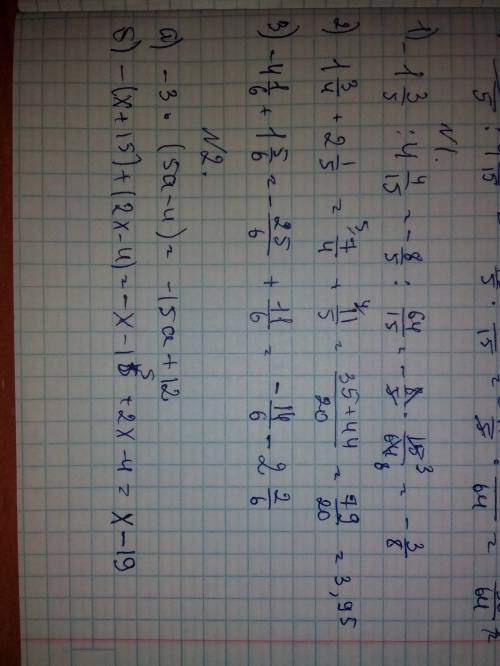 5 : 4 15 = 5 : 15 = 5 · 64 = 64
N1.
1) -1 3/5 : 4 4/15 = - 8/5 : 64/15 = - 8/5 · 15/64 3 8 = - 3/8
2) 1 3/4 + 2 1/5 = 5, 7/4 + 4 11/5 = 35+44/20 = 79/20 = 3,95
3) -4 1/6 + 1 5/6 = - 25/6 + 11/6 = - 14/6 - 2 2/6
N2.
а) -3 · (5a-4) = -15a+12
б) -(x+15)+(2x-4) = -x-15+2x-4 = x-19